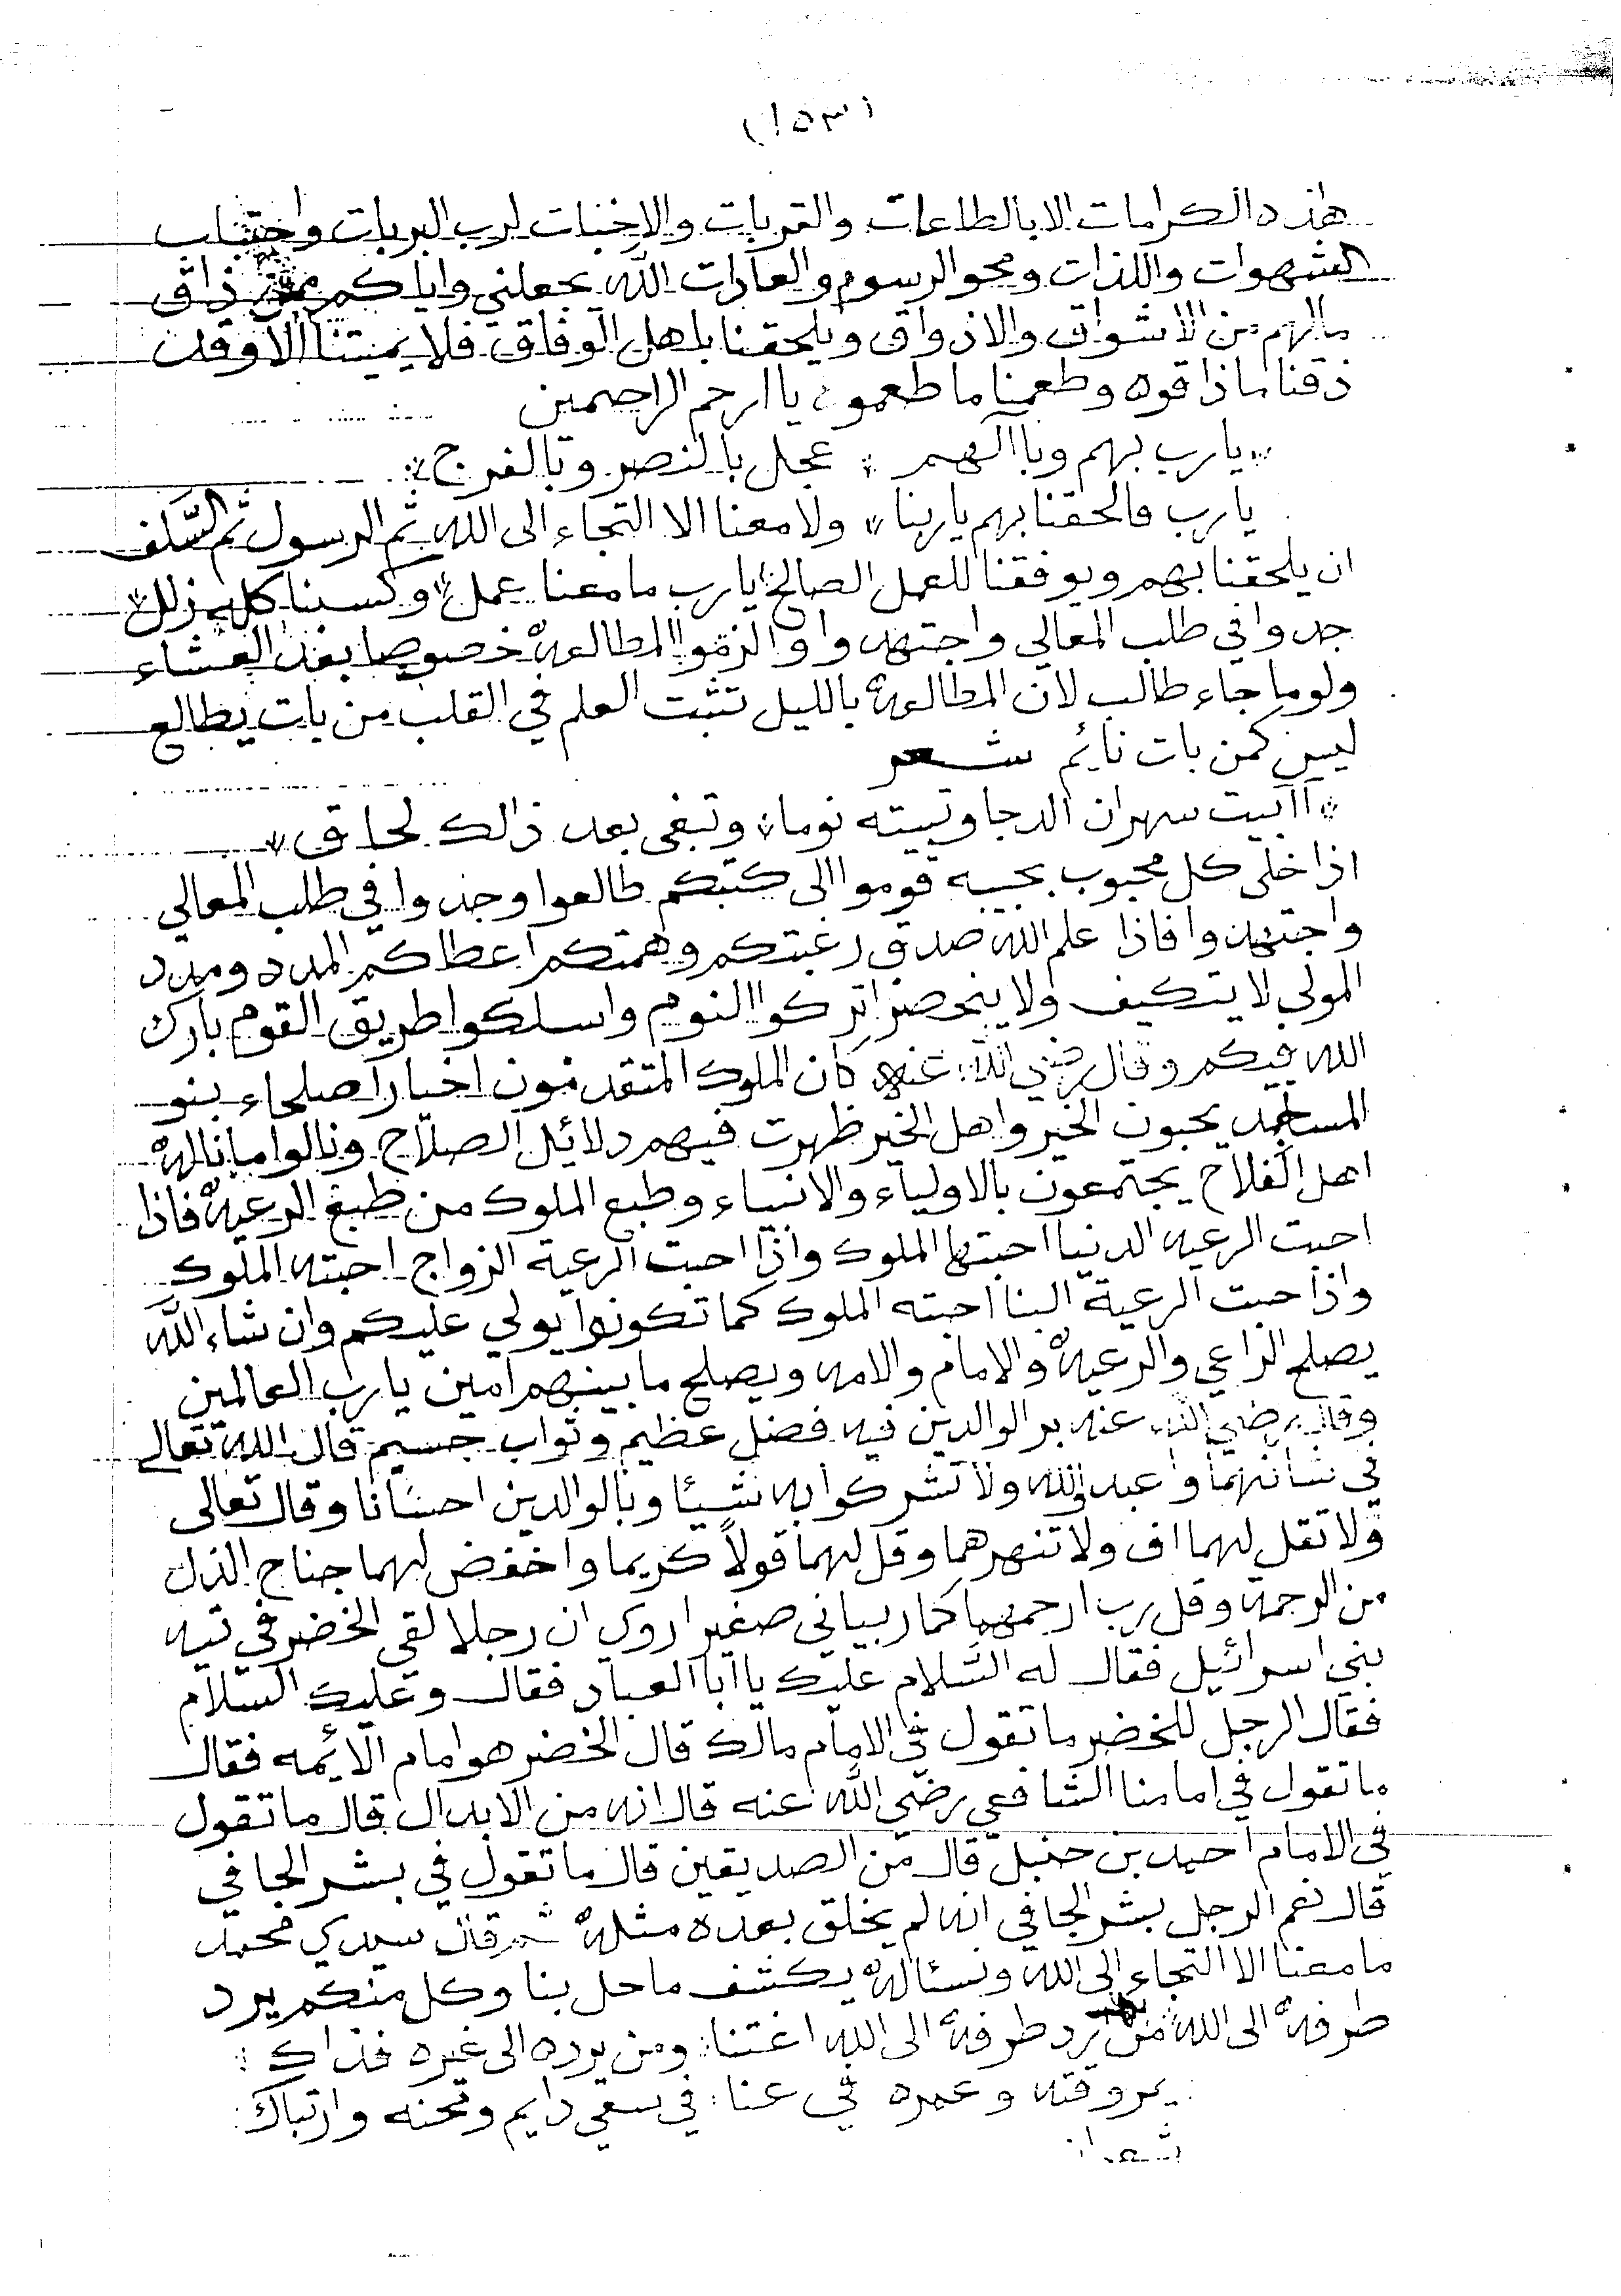 (١٥٣)
هذه الكرامات الا بالطاعات والقربات والاخبات لرب البريات واجتناب
الشهوات واللذات ومحو الرسوم والعادات الله يجعلني واياكم ممن ذاق
مالهم من الاشواق والاذواق ويلحقنا باهل الوفاق فلا يميتنا الا وقد
ذقنا ما ذاقوه وطعمنا ما طعموه يا ارحم الراحمين
يارب بهم وبآلهم ؛ عجل بالنصر وبالفرج
يارب فالحقنا بهم ياربنا ؛ ولا معنا الا التجاء الى الله ثم الرسول ثم السَّلف
ان يلحقنا بهم ويوفقنا للعمل الصالح يارب ما معنا عمل وكسبنا كله زلل
جدوا في طلب المعالي واجتهدوا والزموا المطالعة خصوصا بعد العشاء
ولو ما جاء طالب لان المطالعة بالليل تثبت العلم في القلب من بات يطالع
ليس كمن بات نائم شعر
أأبيت سهران الدجا وتبيته نوما ؛ وتبغى بعد ذالك لحاق
اذا خلى كل محبوب بحبيبه قوموا الى كتبكم طالعوا وجدوا في طلب المعالي
واجتهدوا فاذا علم الله صدق رغبتكم وهمتكم اعطاكم المدد ومدد
المولى لا يتكيف ولا ينحصر اتركوا النوم واسلكوا طريق القوم بارك
الله فيكم وقال رضي الله عنه كان الملوك المتقدمون اخيارا صلحاء بنو
المساجد يحبون الخير واهل الخير ظهرت فيهم دلائل الصلاح ونالوا ما ناله
اهل الفلاح يجتمعون بالاولياء والانبياء وطبع الملوك من طبع الرعية فاذا
احبت الرعيه الدنيا احبتها الملوك واذا احبت الرعية الزواج احبته الملوك
واذا حبت الرعية البنا احبته الملوك كما تكونوا يولي عليكم وان شاء الله
يصلح الراعي والرعية والامام والامه ويصلح ما بينهم آمين يارب العالمين
وقال رضي الله عنه بر الوالدين فيه فضل عظيم وثواب جسيم قال الله تعالى
في شانهما واعبدوالله ولا تشركوا به شيئا وبالوالدين احسانا وقال تعالى
ولا تقل لهما اف ولا تنهرهما وقل لهما قولاً كريما واخفض لهما جناح الذل
من الرحمة وقل رب ارحمهما كما ربياني صغيرا روي ان رجلا لقى الخضر في تيه
بني اسرائيل فقال له السَّلام عليك يا ابا العباد فقال وعليك السلام
فقال الرجل للخضر ما تقول في الامام مالك قال الخضر هو امام الائمه فقال
ما تقول في امامنا الشافعي رضي الله عنه قال انه من الابدال قال ما تقول
في الامام احمد بن حنبل قال من الصديقين قال ما تقول في بشر الحافي
قال نعم الرجل بشر الحافي انه لم يخلق بعده مثله ثم قال سيدي محمد
ما معنا الا التجاء الى الله ونسئاله يكشف ما حل بنا وكل منكم يرد
طرفه الى الله من يرد طرفه الى الله اغتنا : ومن يرده الى غيره فذاك :
يمر وقته وعمره في عنا : في سعي دايم ومحنه وارتباك :
شعرا :